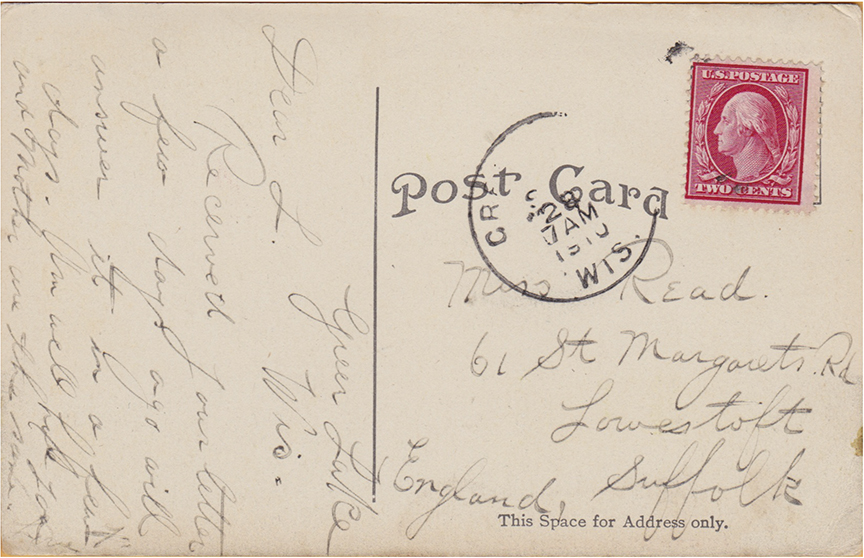 Green Lake
Wis.
Dear L.
Received your letter
a few days ago will
answer it in a few
days. Am well hope you
and Mother are the same.
Post Card
U.S. POSTAGE
TWO CENTS
GRE
28
7 AM
1910
WIS.
Miss Read.
61 St Margarets Rd
Lowestoft
Suffolk
England,
This Space for Address only.